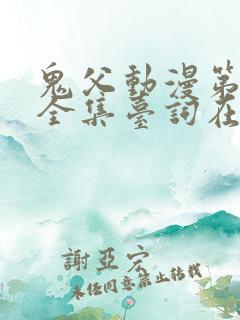 鬼父動漫第
全集臺詞在
謝亞宏
未經同意禁止转载